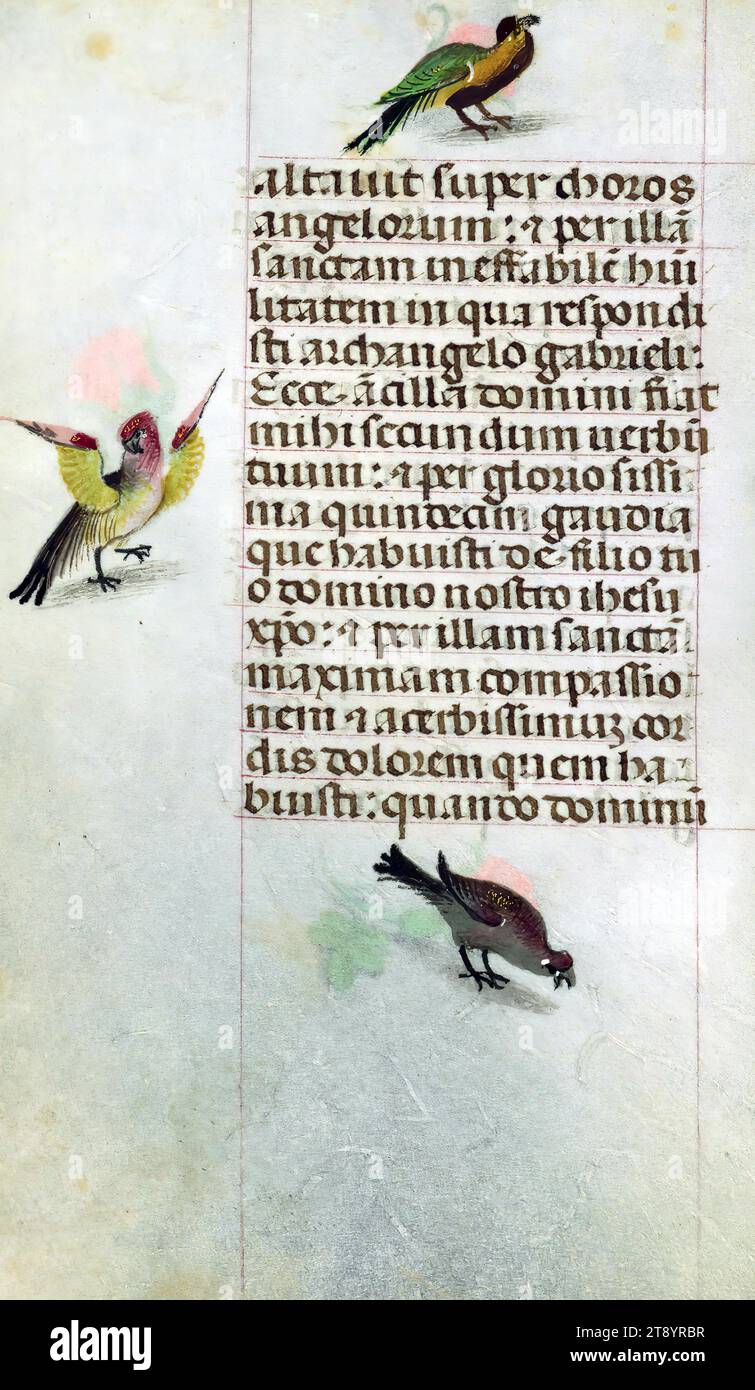 altauit super choros
angelorum: ⁊ per illā
sanctam ineffabilē hūi
litatem in qua respondi
sti archangelo gabrieli:
Ecce ācilla domini fiat
mihi secundum uerbū
tuum: ⁊ per gloriosissi
ma quindecim gaudia
que habuisti de filio tu
o domino nostro ihesu
xp̄o: ⁊ per illam sanctā
maximam compassio
nem ⁊ acerbissimuꝫ cor
dis dolorem quem ha
buisti: quando dominū
alamy
a
alamy
a
alamy
Image ID: 2T8YRBR
www.alamy.com